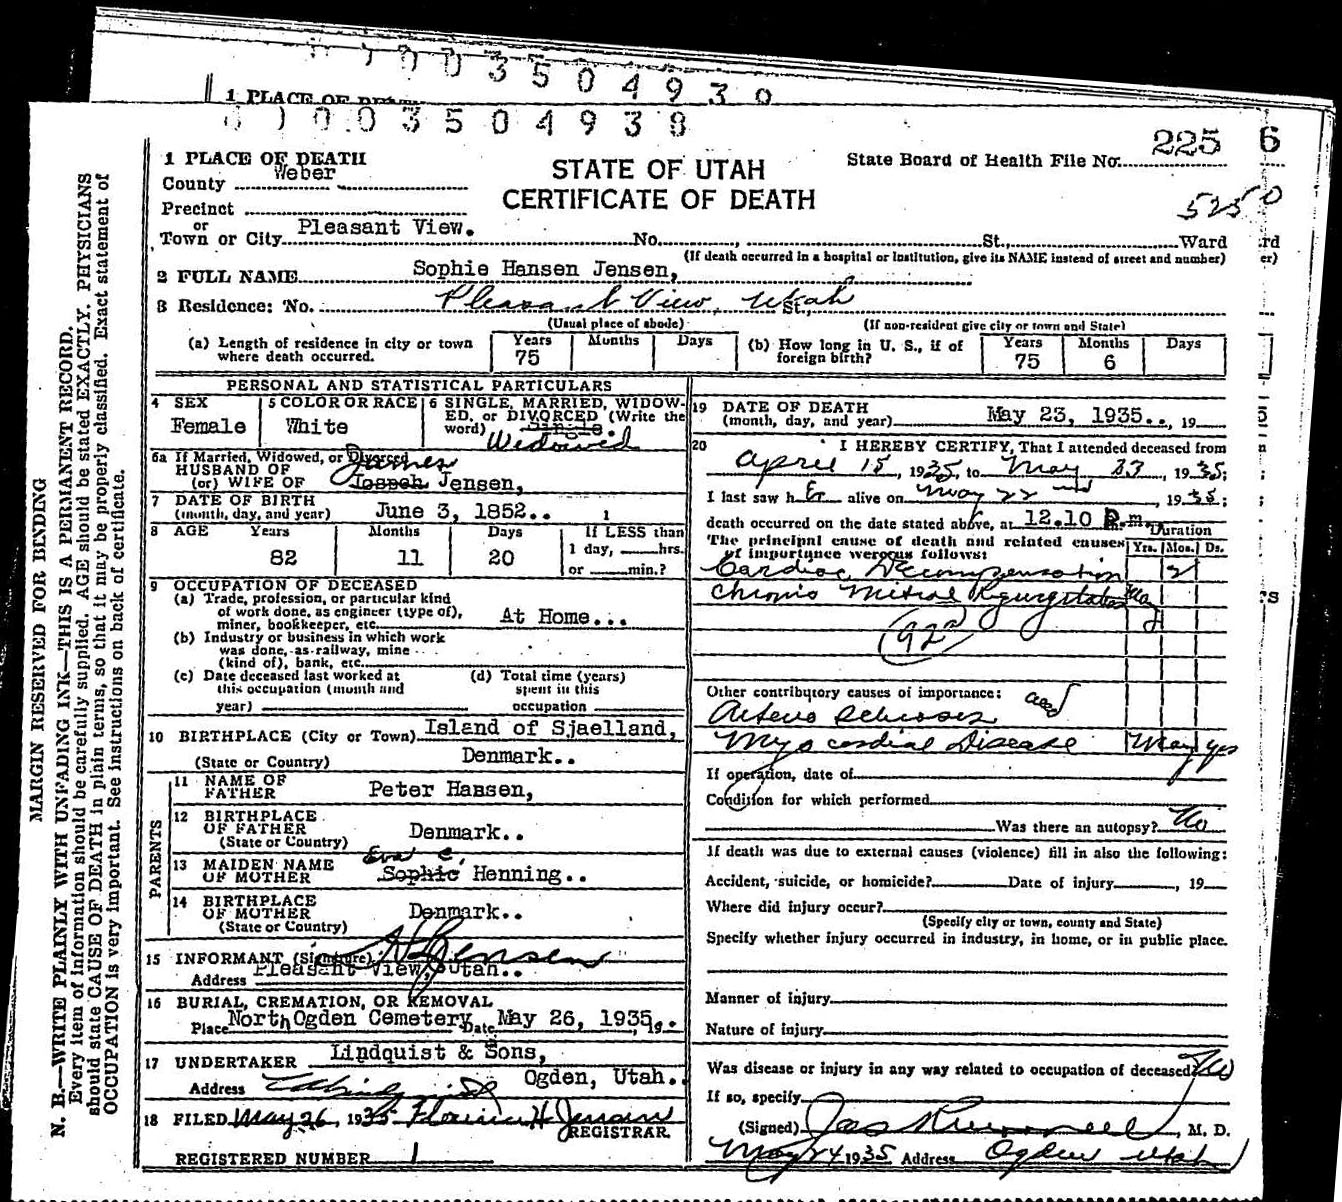 3 5 0 4 9 3 9
1 PLACE OF DEATH
0 0 3 5 0 4 9 3 8
225 6
1 PLACE OF DEATH
STATE OF UTAH
CERTIFICATE OF DEATH
State Board of Health File No.
5250
County Weber
Precinct
or
Town or City Pleasant View. No. , St., Ward
(If death occurred in a hospital or institution, give its NAME instead of street and number)
2 FULL NAME Sophie Hansen Jensen,
3 Residence: No. Pleasant View, Utah St.,
(Usual place of abode) (If non-resident give city or town and State)
(a) Length of residence in city or town where death occurred. Years 75 Months Days
(b) How long in U. S., if of foreign birth? Years 75 Months 6 Days
PERSONAL AND STATISTICAL PARTICULARS
4 SEX Female
5 COLOR OR RACE White
6 SINGLE, MARRIED, WIDOWED, or DIVORCED (Write the word) Single Widowed
6a If Married, Widowed, or Divorced
HUSBAND OF
(or) WIFE OF James Joseph Jensen,
7 DATE OF BIRTH
(month, day, and year) June 3, 1852.. 1
8 AGE Years 82 Months 11 Days 20
If LESS than
1 day, hrs.
or min.?
9 OCCUPATION OF DECEASED
(a) Trade, profession, or particular kind
of work done, as engineer (type of),
miner, bookkeeper, etc. At Home...
(b) Industry or business in which work
was done, as railway, mine
(kind of), bank, etc.
(c) Date deceased last worked at
this occupation (month and
year)
(d) Total time (years)
spent in this
occupation
10 BIRTHPLACE (City or Town) Island of Sjaelland,
(State or Country) Denmark..
PARENTS
11 NAME OF
FATHER Peter Hansen,
12 BIRTHPLACE
OF FATHER
(State or Country) Denmark..
13 MAIDEN NAME
OF MOTHER Eva C. Sophie Henning..
14 BIRTHPLACE
OF MOTHER
(State or Country) Denmark..
15 INFORMANT (Signature) Jensen
Address Pleasant View, Utah..
16 BURIAL, CREMATION, OR REMOVAL
Place North Ogden Cemetery Date May 26, 1935, 19..
17 UNDERTAKER Lindquist & Sons,
Address Ogden, Utah..
18 FILED May 26, 1935 Florence H Jensen
REGISTRAR
REGISTERED NUMBER 1
19 DATE OF DEATH
(month, day, and year) May 23, 1935.., 19
20 I HEREBY CERTIFY, That I attended deceased from
April 15, 1935, to May 23, 1935;
I last saw h Er alive on May 22 , 1935;
death occurred on the date stated above, at 12.10 P.m.
The principal cause of death and related causes
of importance were as follows:
Duration
Yrs. Mos. Ds.
Cardiac Decompensation 2
Chronic Mitral Regurgitation
(92a)
Other contributory causes of importance:
Arterio Sclerosis
Myocardial Disease Many yrs
If operation, date of
Condition for which performed
Was there an autopsy? No
If death was due to external causes (violence) fill in also the following:
Accident, suicide, or homicide? Date of injury , 19
Where did injury occur?
(Specify city or town, county and State)
Specify whether injury occurred in industry, in home, or in public place.
Manner of injury
Nature of injury
Was disease or injury in any way related to occupation of deceased? No
If so, specify
(Signed) , M. D.
May 24 1935 Address Ogden Utah
MARGIN RESERVED FOR BINDING
N. B.—WRITE PLAINLY WITH UNFADING INK—THIS IS A PERMANENT RECORD.
Every item of information should be carefully supplied. AGE should be stated EXACTLY. PHYSICIANS
should state CAUSE OF DEATH in plain terms, so that it may be properly classified. Exact statement of
OCCUPATION is very important. See instructions on back of certificate.